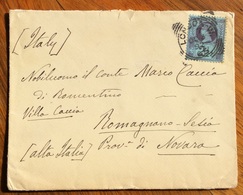 [Italy]
Nobiluomo il conte Marco Caccia
di Romentino
Villa Caccia
Romagnano-Sesia
[alta Italia] Prov: di Novara